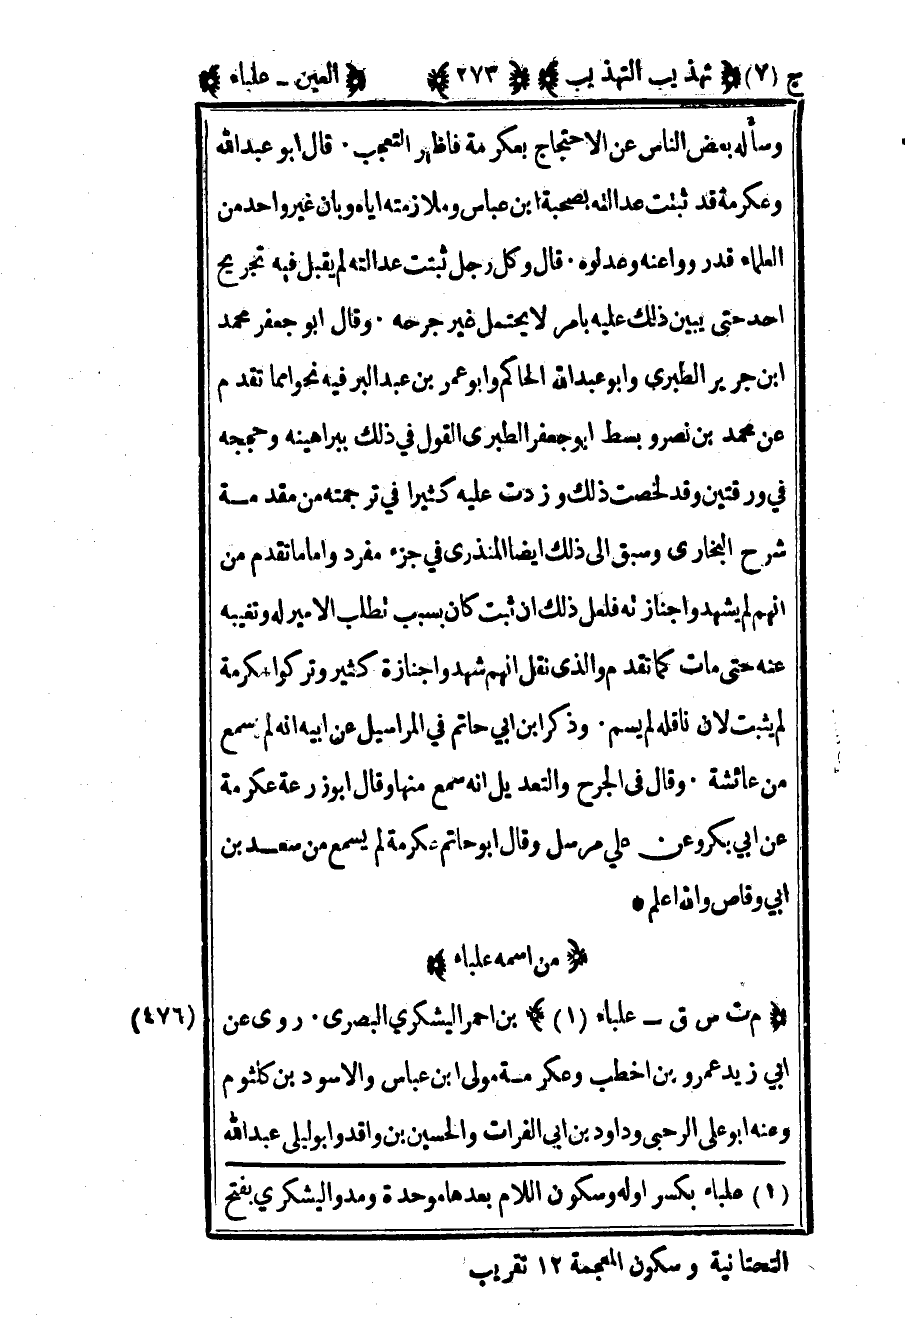 ج (٧) ﴿ تهذيب التهذيب ﴾ ﴿ ٢٧٣ ﴾ ﴿ العين ـ علباء ﴾
وسأله بعض الناس عن الاحتجاج بعكرمة فاظهر التعجب · قال ابو عبدالله
وعكرمة قد ثبتت عدالته بصحبة ابن عباس وملازمته اياه وبان غير واحد من
العلماء قد رووا عنه وعدلوه · قال وكل رجل ثبتت عدالته لم يقبل فيه تجريح
احد حتى يبين ذلك عليه بامر لا يحتمل غير جرحه · وقال ابو جعفر محمد
ابن جرير الطبري وابو عبدالله الحاكم وابو عمر بن عبد البر فيه نحوا مما تقدم
عن محمد بن نصر و بسط ابو جعفر الطبرى القول في ذلك ببراهينه وحججه
في ورقتين وقد لخصت ذلك و زدت عليه كثيرا في ترجمته من مقدمـة
شرح البخارى وسبق الى ذلك ايضا المنذرى في جزء مفرد واما ما تقدم من
انهم لم يشهدوا جنازته فلعل ذلك ان ثبت كان بسبب تطلب الامير له وتغيبه
عنه حتى مات كما تقدم والذى نقل انهم شهدوا جنازة كثير وتركوا عكرمة
لم يثبت لان ناقله لم يسم · وذكر ابن ابي حاتم في المراسيل عن ابيه انه لم يسمع
من عائشة · وقال فى الجرح والتعديل انه سمع منها وقال ابوزرعة عكرمة
عن ابي بكر وعن علي مرسل وقال ابو حاتم عكرمة لم يسمع من سعـد بن
ابي وقاص والله اعلم ●
﴿ من اسمه علباء ﴾
﴿ م ت س ق ـ علباء (١) ﴾ بن احمر اليشكري البصرى · روى عن (٤٧٦)
ابي زيد عمرو بن اخطب وعكرمـة مولى ابن عباس والاسود بن كلثوم
وعنه ابو على الرحبى وداود بن ابي الفرات والحسين بن واقد وابو ليلى عبدالله
(١) علباء بكسر اوله وسكون اللام بعدها موحدة ومد واليشكري بفتح
التحتانية وسكون المعجمة ١٢ تقريب